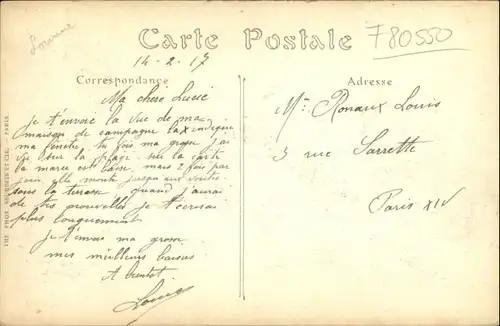 F80550
Carte Postale
14-2-17
Correspondance
Adresse
Ma chère Lucie
je t'envoie la vue de ma
maison de campagne
ma fenêtre, tu fois ma grosse j'ai
vue sur la plage sur la carte
la marée est basse, mais 2 fois par
jour elle monte jusqu aux
sous la terrasse quand j'aurai
de tes nouvelles je t'écrirai
plus longuement
je t'envoie ma grosse
mes meilleurs baisers
A bientôt
Louis
Mr Ronaux Louis
3 rue Sarrette
Paris XIV
PARIS